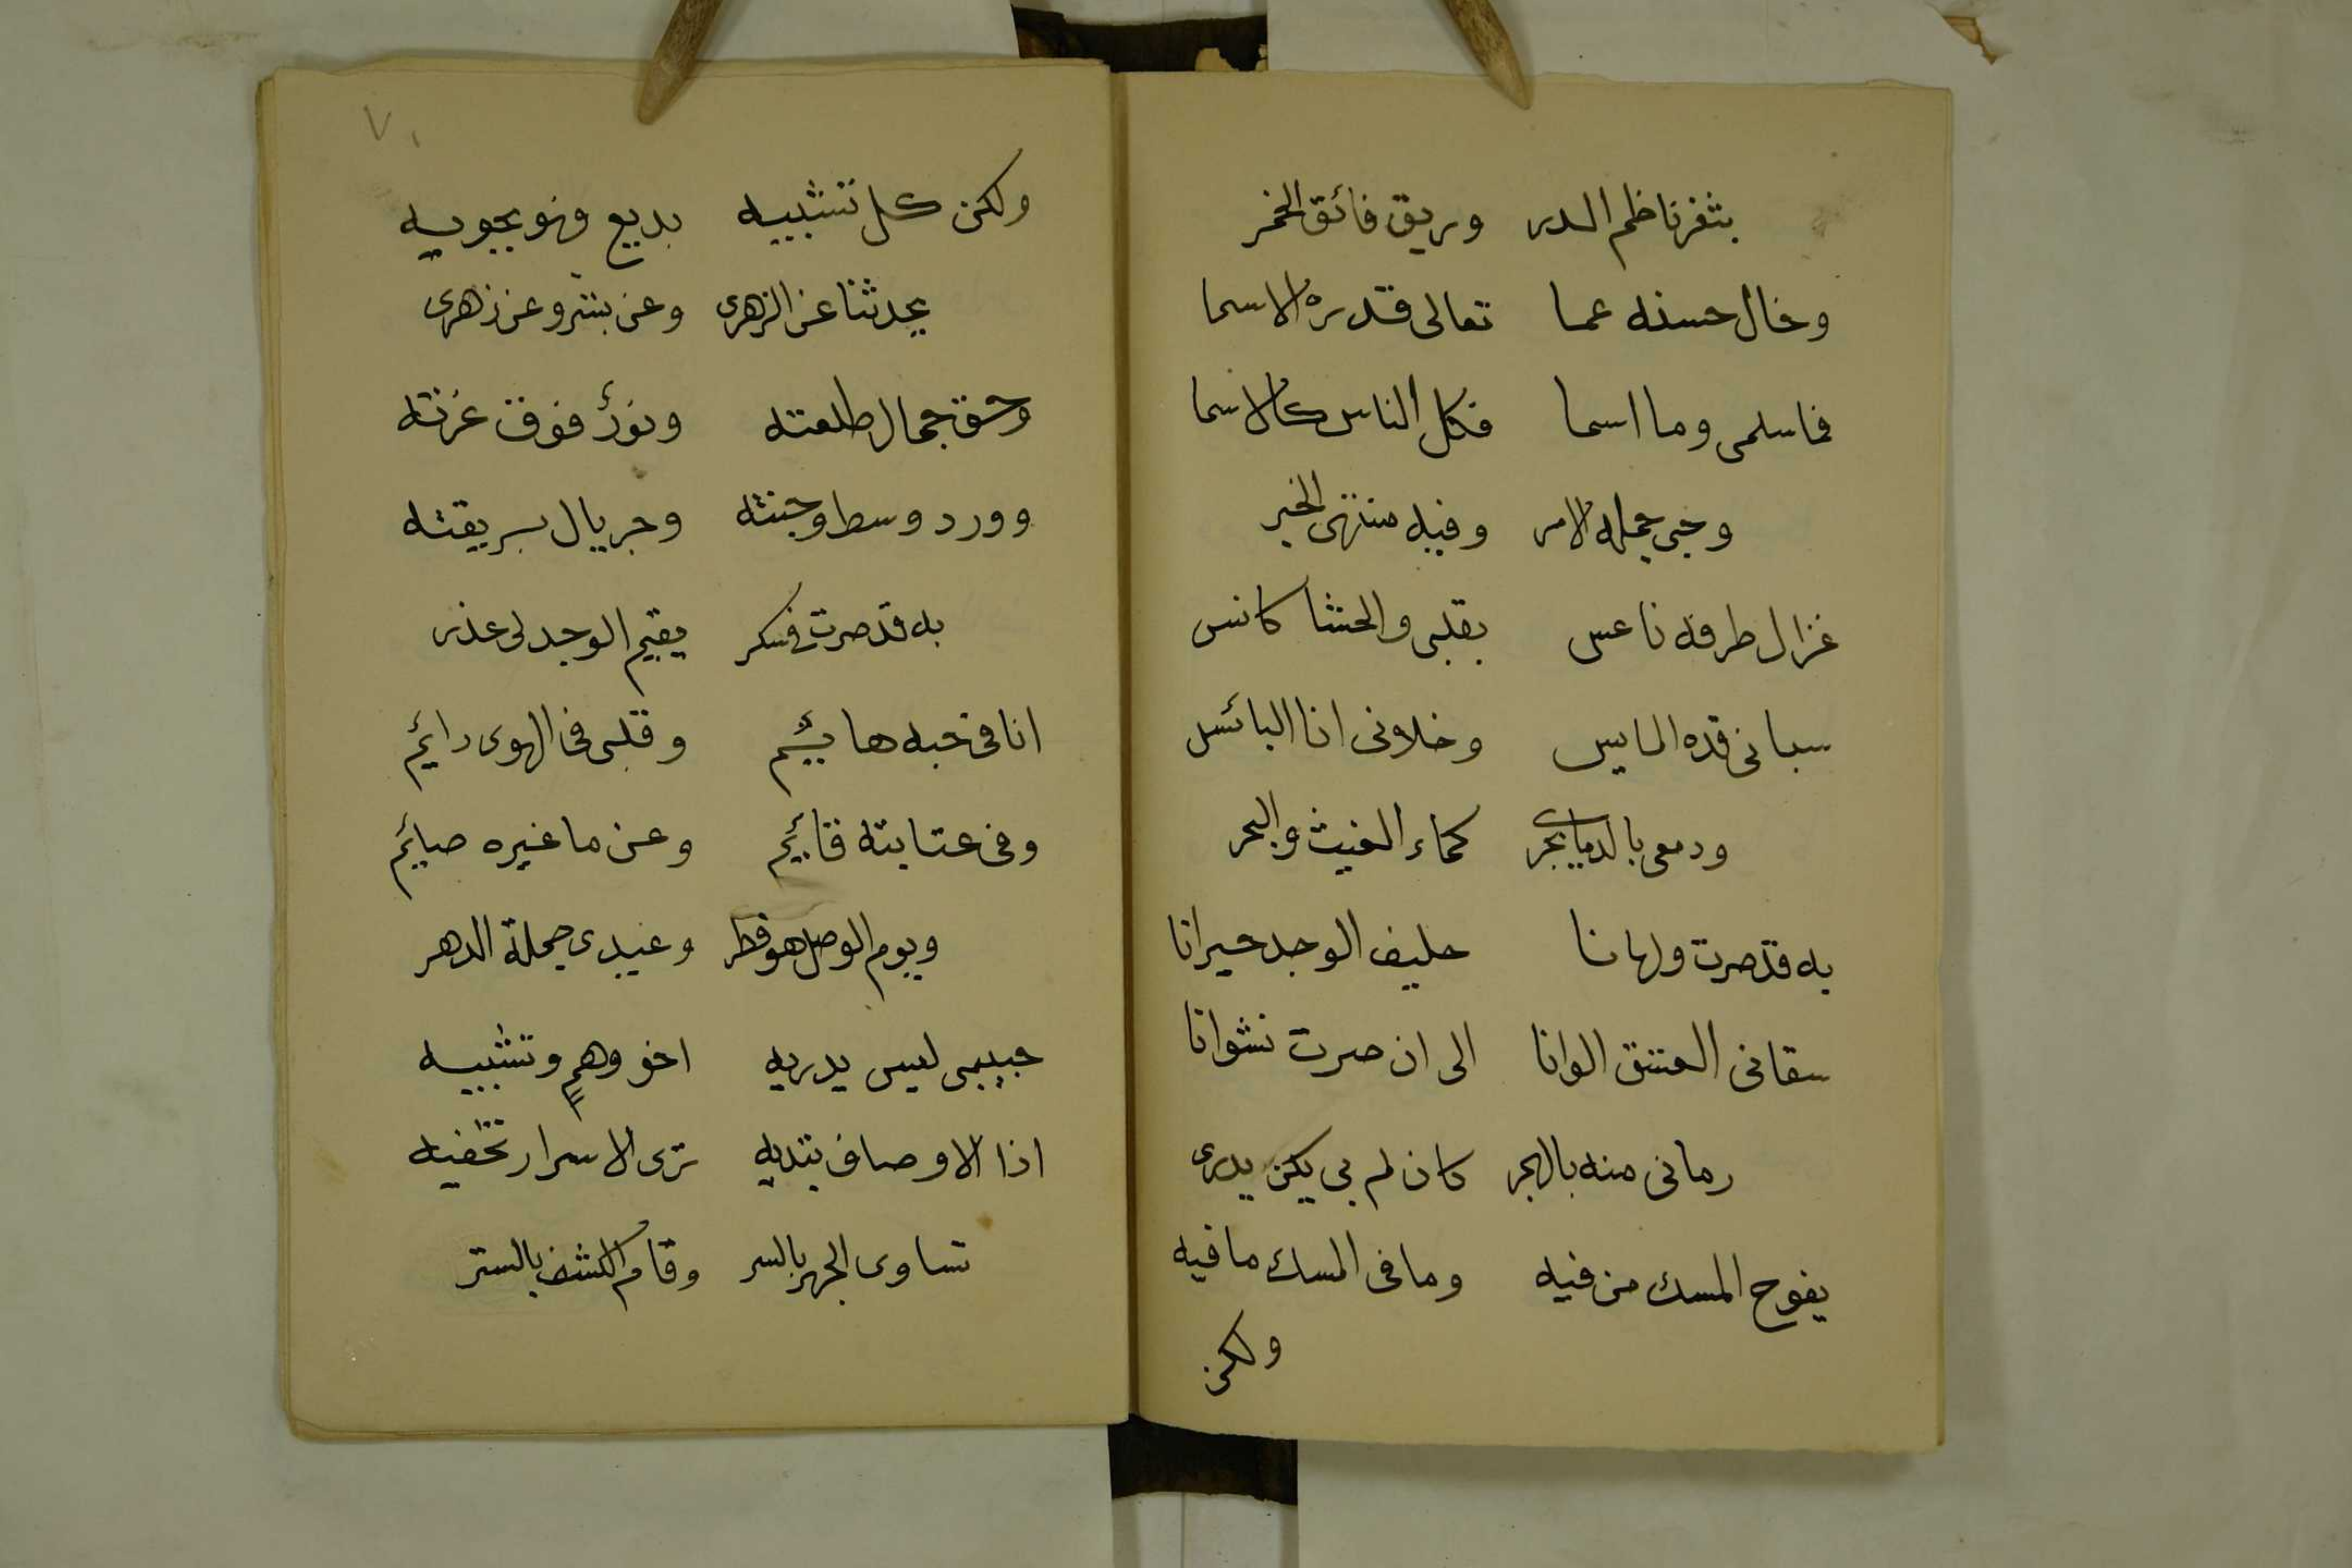 بثغر ناظم الدر وريق فائق الخمر
وخال حسنه عما تعالى قدره الاسما
فما سلمى وما اسما فكل الناس كالاسما
وحبى جملة الامر وفيه منتهى الخبر
غزال طرفه ناعس بقلبى والحشا كانس
سبانى قده المايس وخلانى انا البائس
ودمعى بالدما يجرى كماء الغيث والبحر
به قد صرت ولهانا حليف الوجد حيرانا
سقانى العشق الوانا الى ان صرت نشوانا
رمانى منه بالهجر كان لم بى يكن يدرى
يفوح المسك من فيه وما فى المسك ما فيه
ولكن
٧١
ولكن كل تشبيه بديع وهو يحويه
يحدثنا عن الزهرى وعن بشر وعن زهرى
وحق جمال طلعته ونور فوق غرته
وورد وسط وجنته وجريال بريقته
به قد صرت فى سكر يقيم الوجد لى عذر
انا فى حبه هائيم وقلبى فى الهوى دائيم
وفى عتابته قائيم وعن ما غيره صائيم
ويوم الوصل هو فطر وعيدى جملة الدهر
حبيبى ليس يدريه اخو وهمٍ وتشبيه
اذا الاوصاف تبديه ترى الاسرار تخفيه
تساوى الجهر بالسر وقام الكشف بالستر